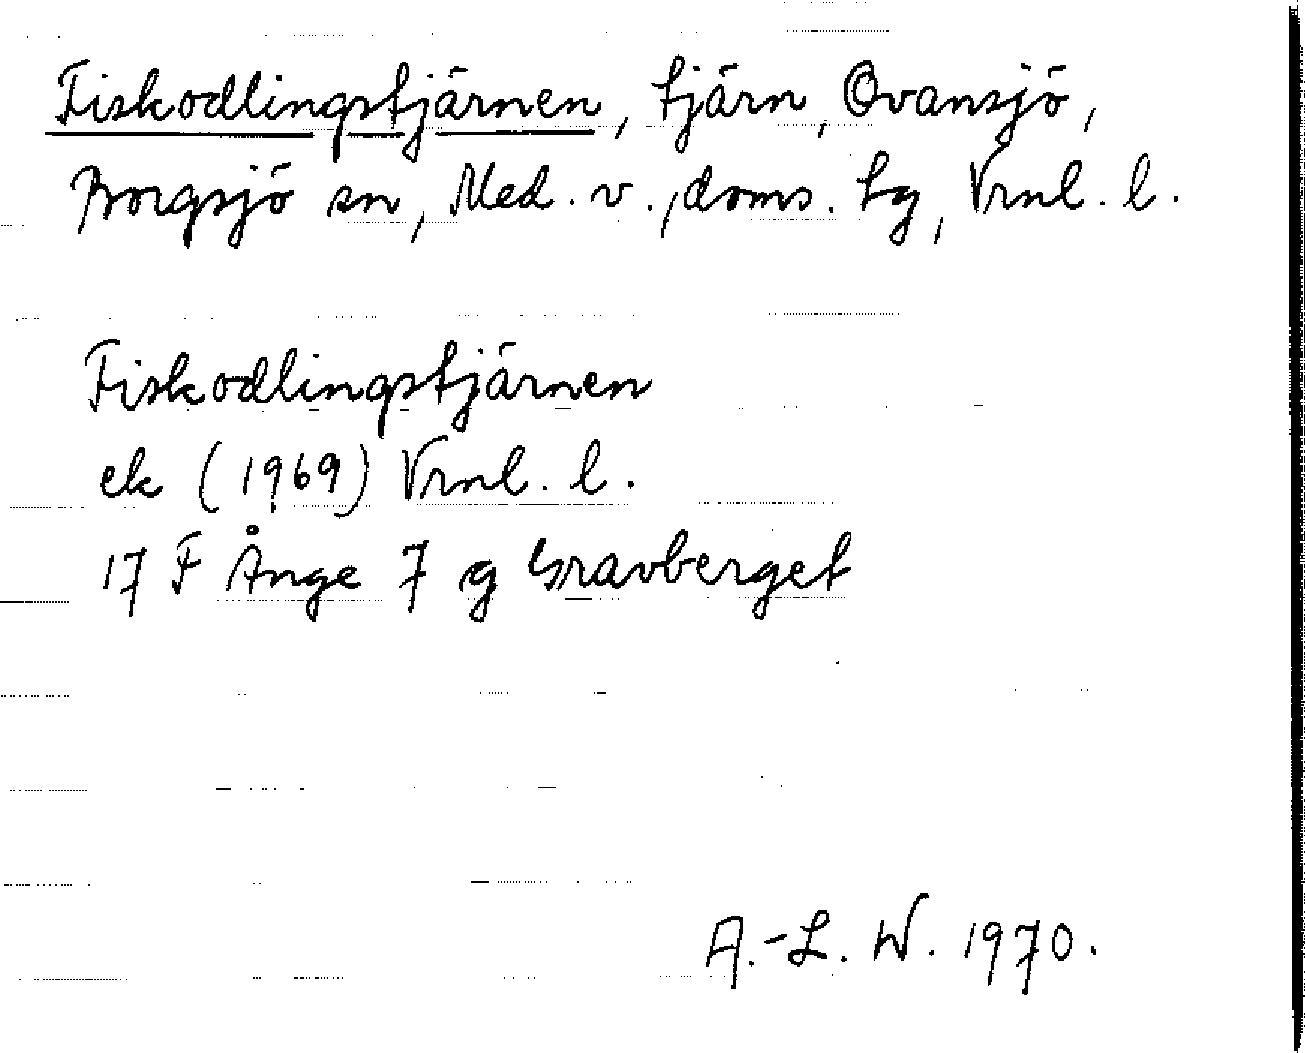 Fiskodlingstjärnen, tjärn, Ovansjö,
Borgsjö sn, Med. v., doms. tg, Vrnl. l.
Fiskodlingstjärnen
ek (1969) Vrnl. l.
17 F Ånge 7 g Gravberget
A.-L. W. 1970.